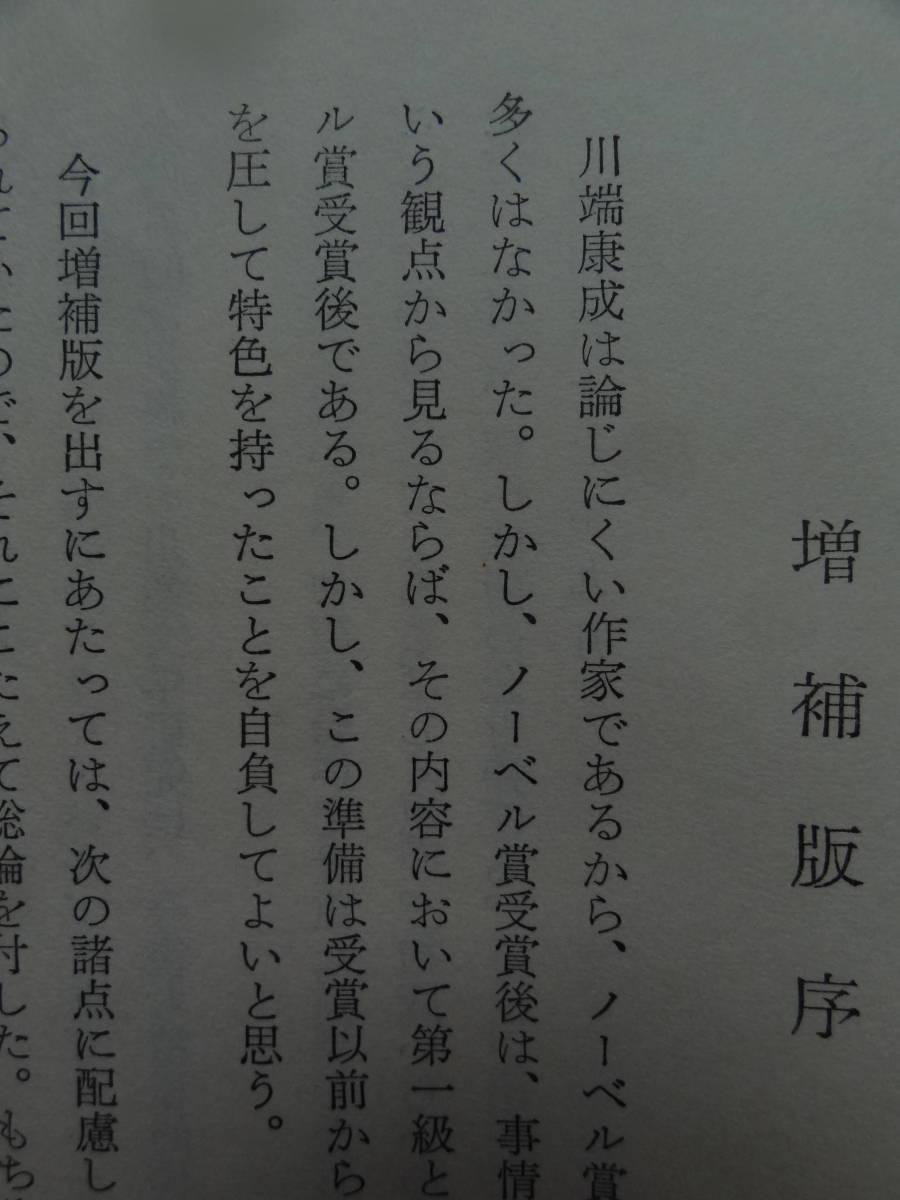 増補版序
川端康成は論じにくい作家であるから、ノーベル賞
多くはなかった。しかし、ノーベル賞受賞後は、事情
いう観点から見るならば、その内容において第一級と
ル賞受賞後である。しかし、この準備は受賞以前から
を圧して特色を持ったことを自負してよいと思う。
今回増補版を出すにあたっては、次の諸点に配慮し
られていたので、それにこたえて総論を付した。もち